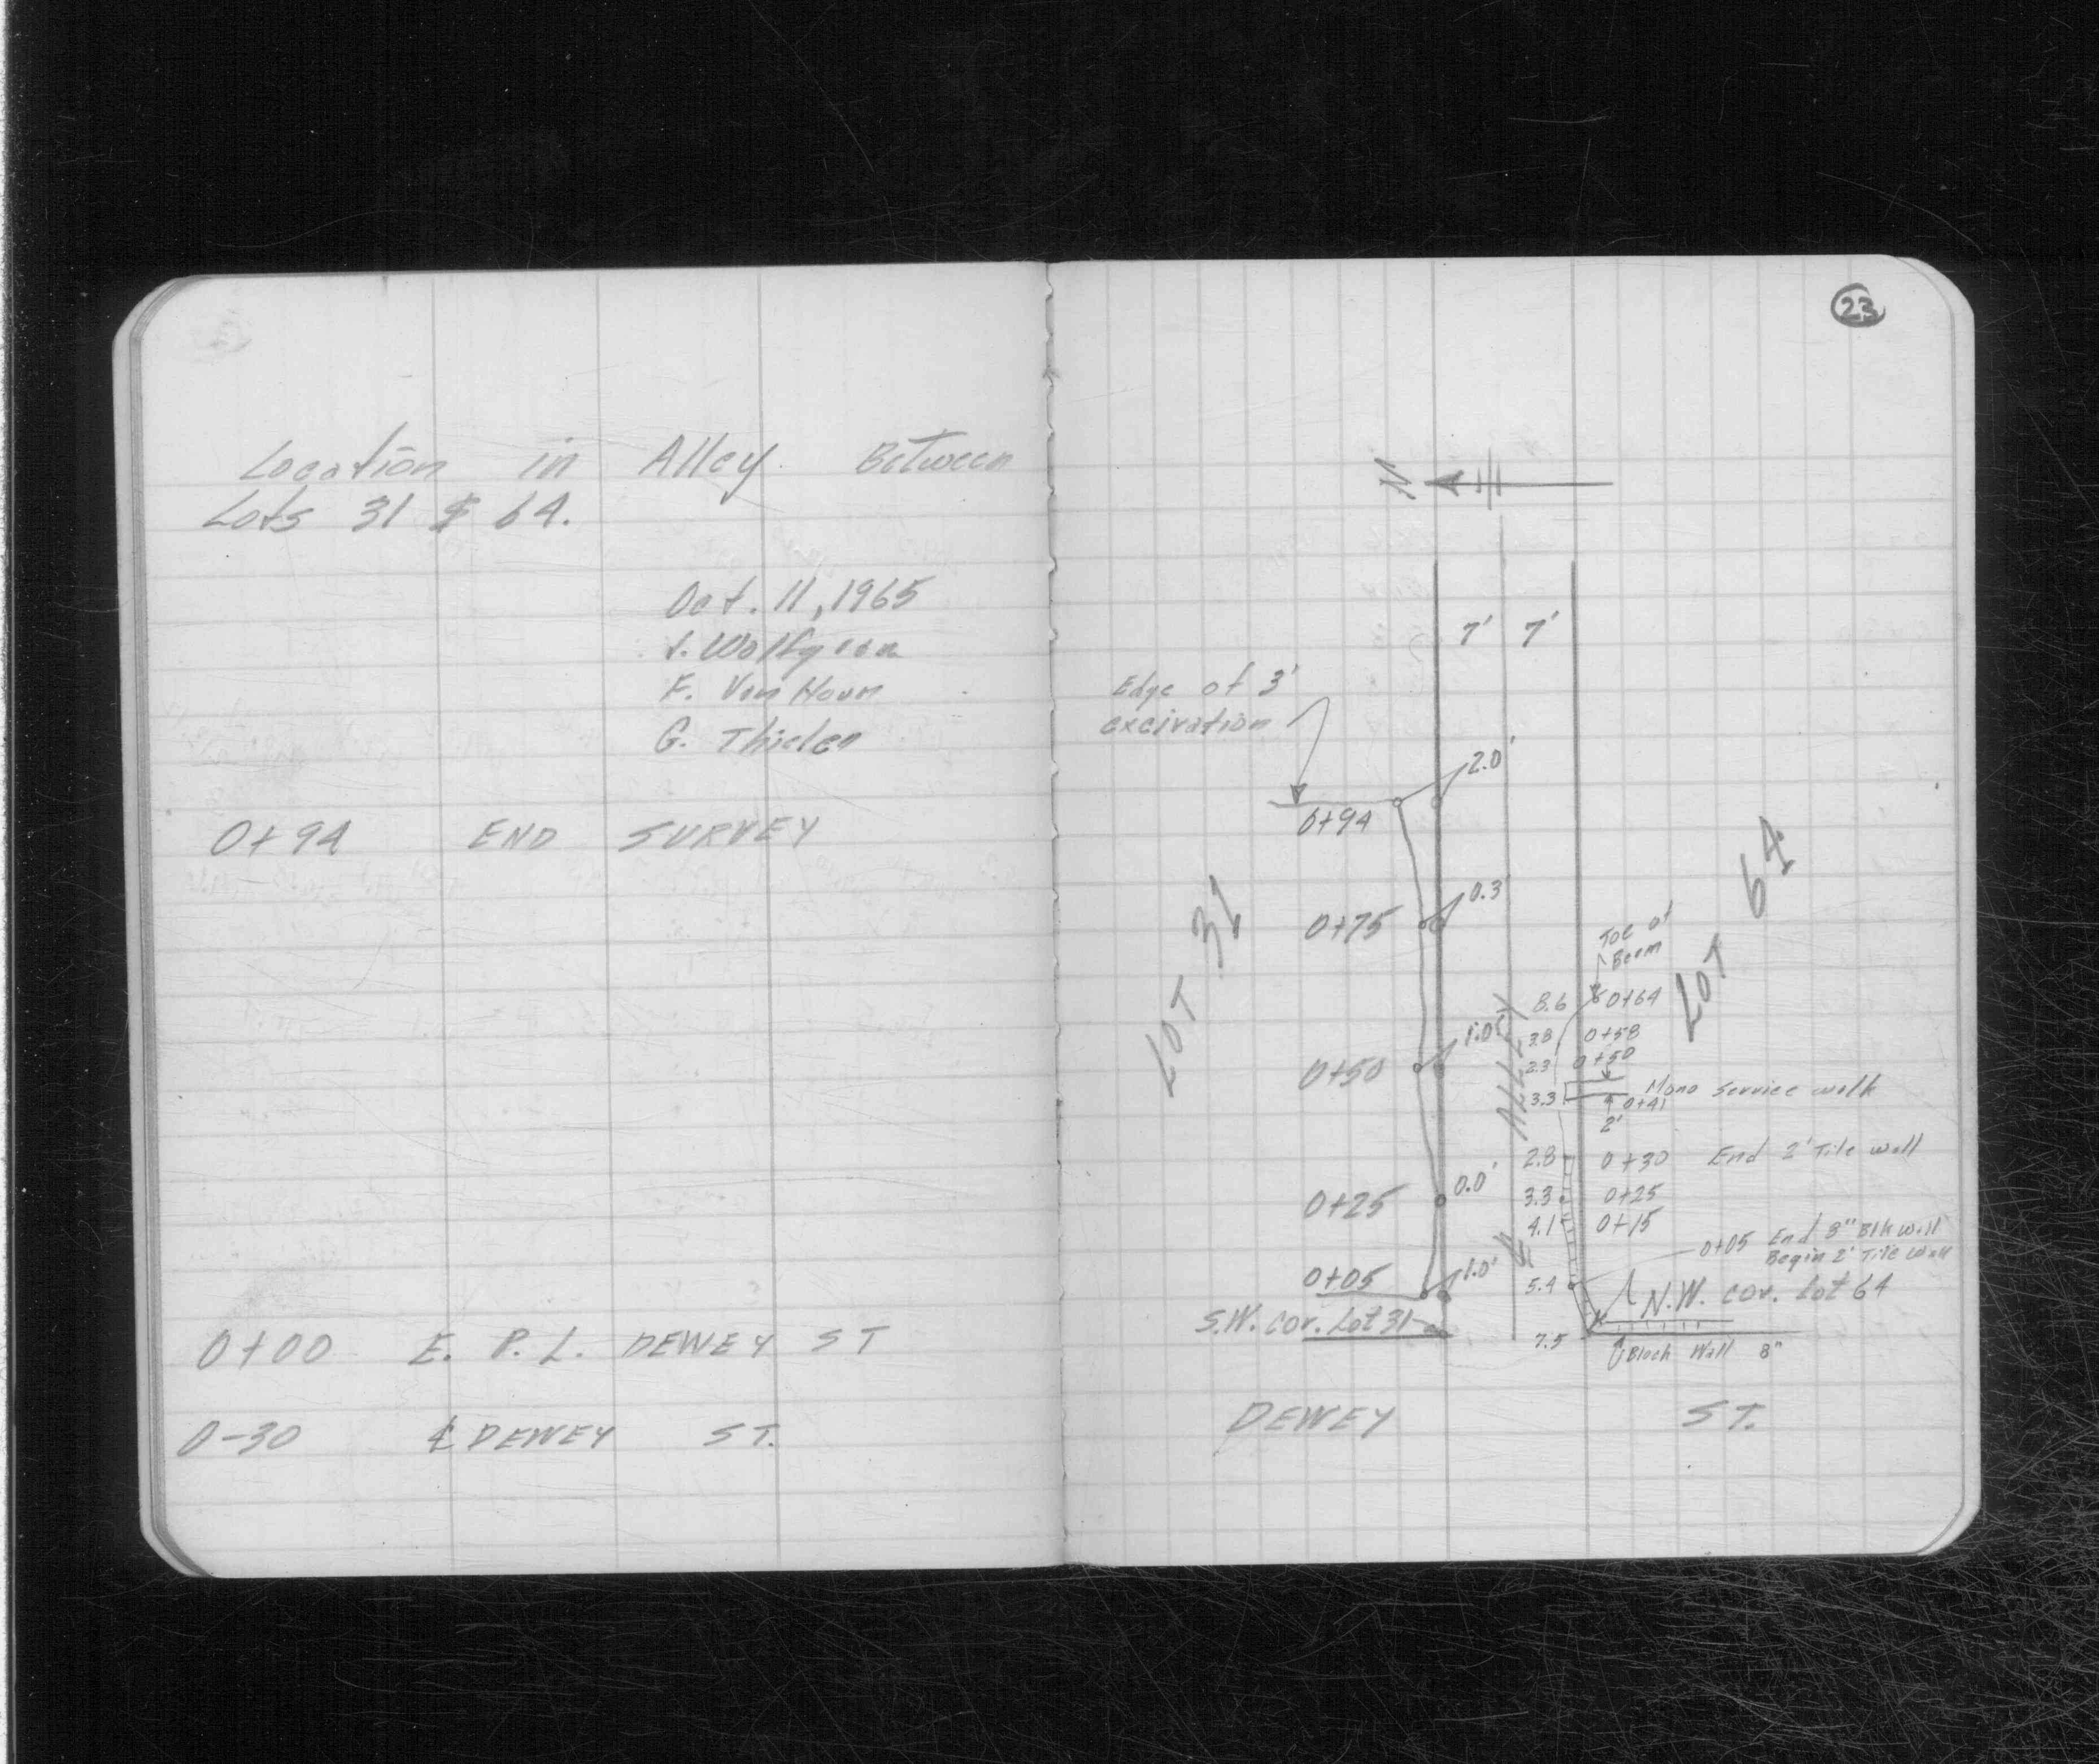 Location in Alley Between
Lots 31 & 64.
Oct. 11, 1965
F. Van Houn
G. Thielen
0+94 END SURVEY
0+00 E. P. L. DEWEY ST
0-30 ℄ DEWEY ST.
23
N
7' 7'
Edge of 3'
excivation
2.0'
0+94
LOT 31
0.3
0+75
LOT 64
Toe of
Berm
8.6 0+64
1.0'
3.8 0+58
2.3 0+50
0+50
ALLEY
3.3 Mono Service walk
0+41
2'
2.8 0+30 End 2' Tile wall
0.0'
0+25
3.3 0+25
4.1 0+15
℄
0+05 End 8" Blk wall
Begin 2' Tile wall
0+05
1.0'
5.4
N.W. cor. Lot 64
S.W. cor. Lot 31
7.5
Block Wall 8"
DEWEY ST.